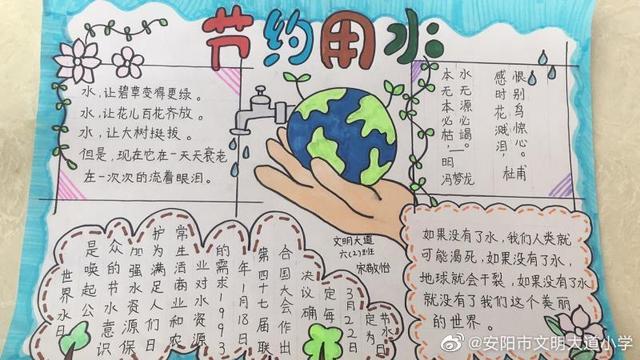 节约用水
水,让碧草变得更绿。
水,让花儿百花齐放。
水,让大树挺拔。
但是,现在它在一天天衰老
在一次次的流着眼泪。
感时花溅泪,
恨别鸟惊心。
杜甫
水无源必竭,
本无本必枯。——明
冯梦龙
文明大道
六(2)班
世界水日
是唤起公
众的水意识
加强水资源保
护为满足人们日
常生活商业和农
业对水资源
的需求1993
年1月18日
第四十七届联
合国大会作出
决议确
定每
3月22日
定为
节水日
如果没有了水,我们人类就
可能渴死,如果没有了水,
地球就会干裂,如果没有了水
就没有了我们这个美丽
的世界。
@安阳市文明大道小学